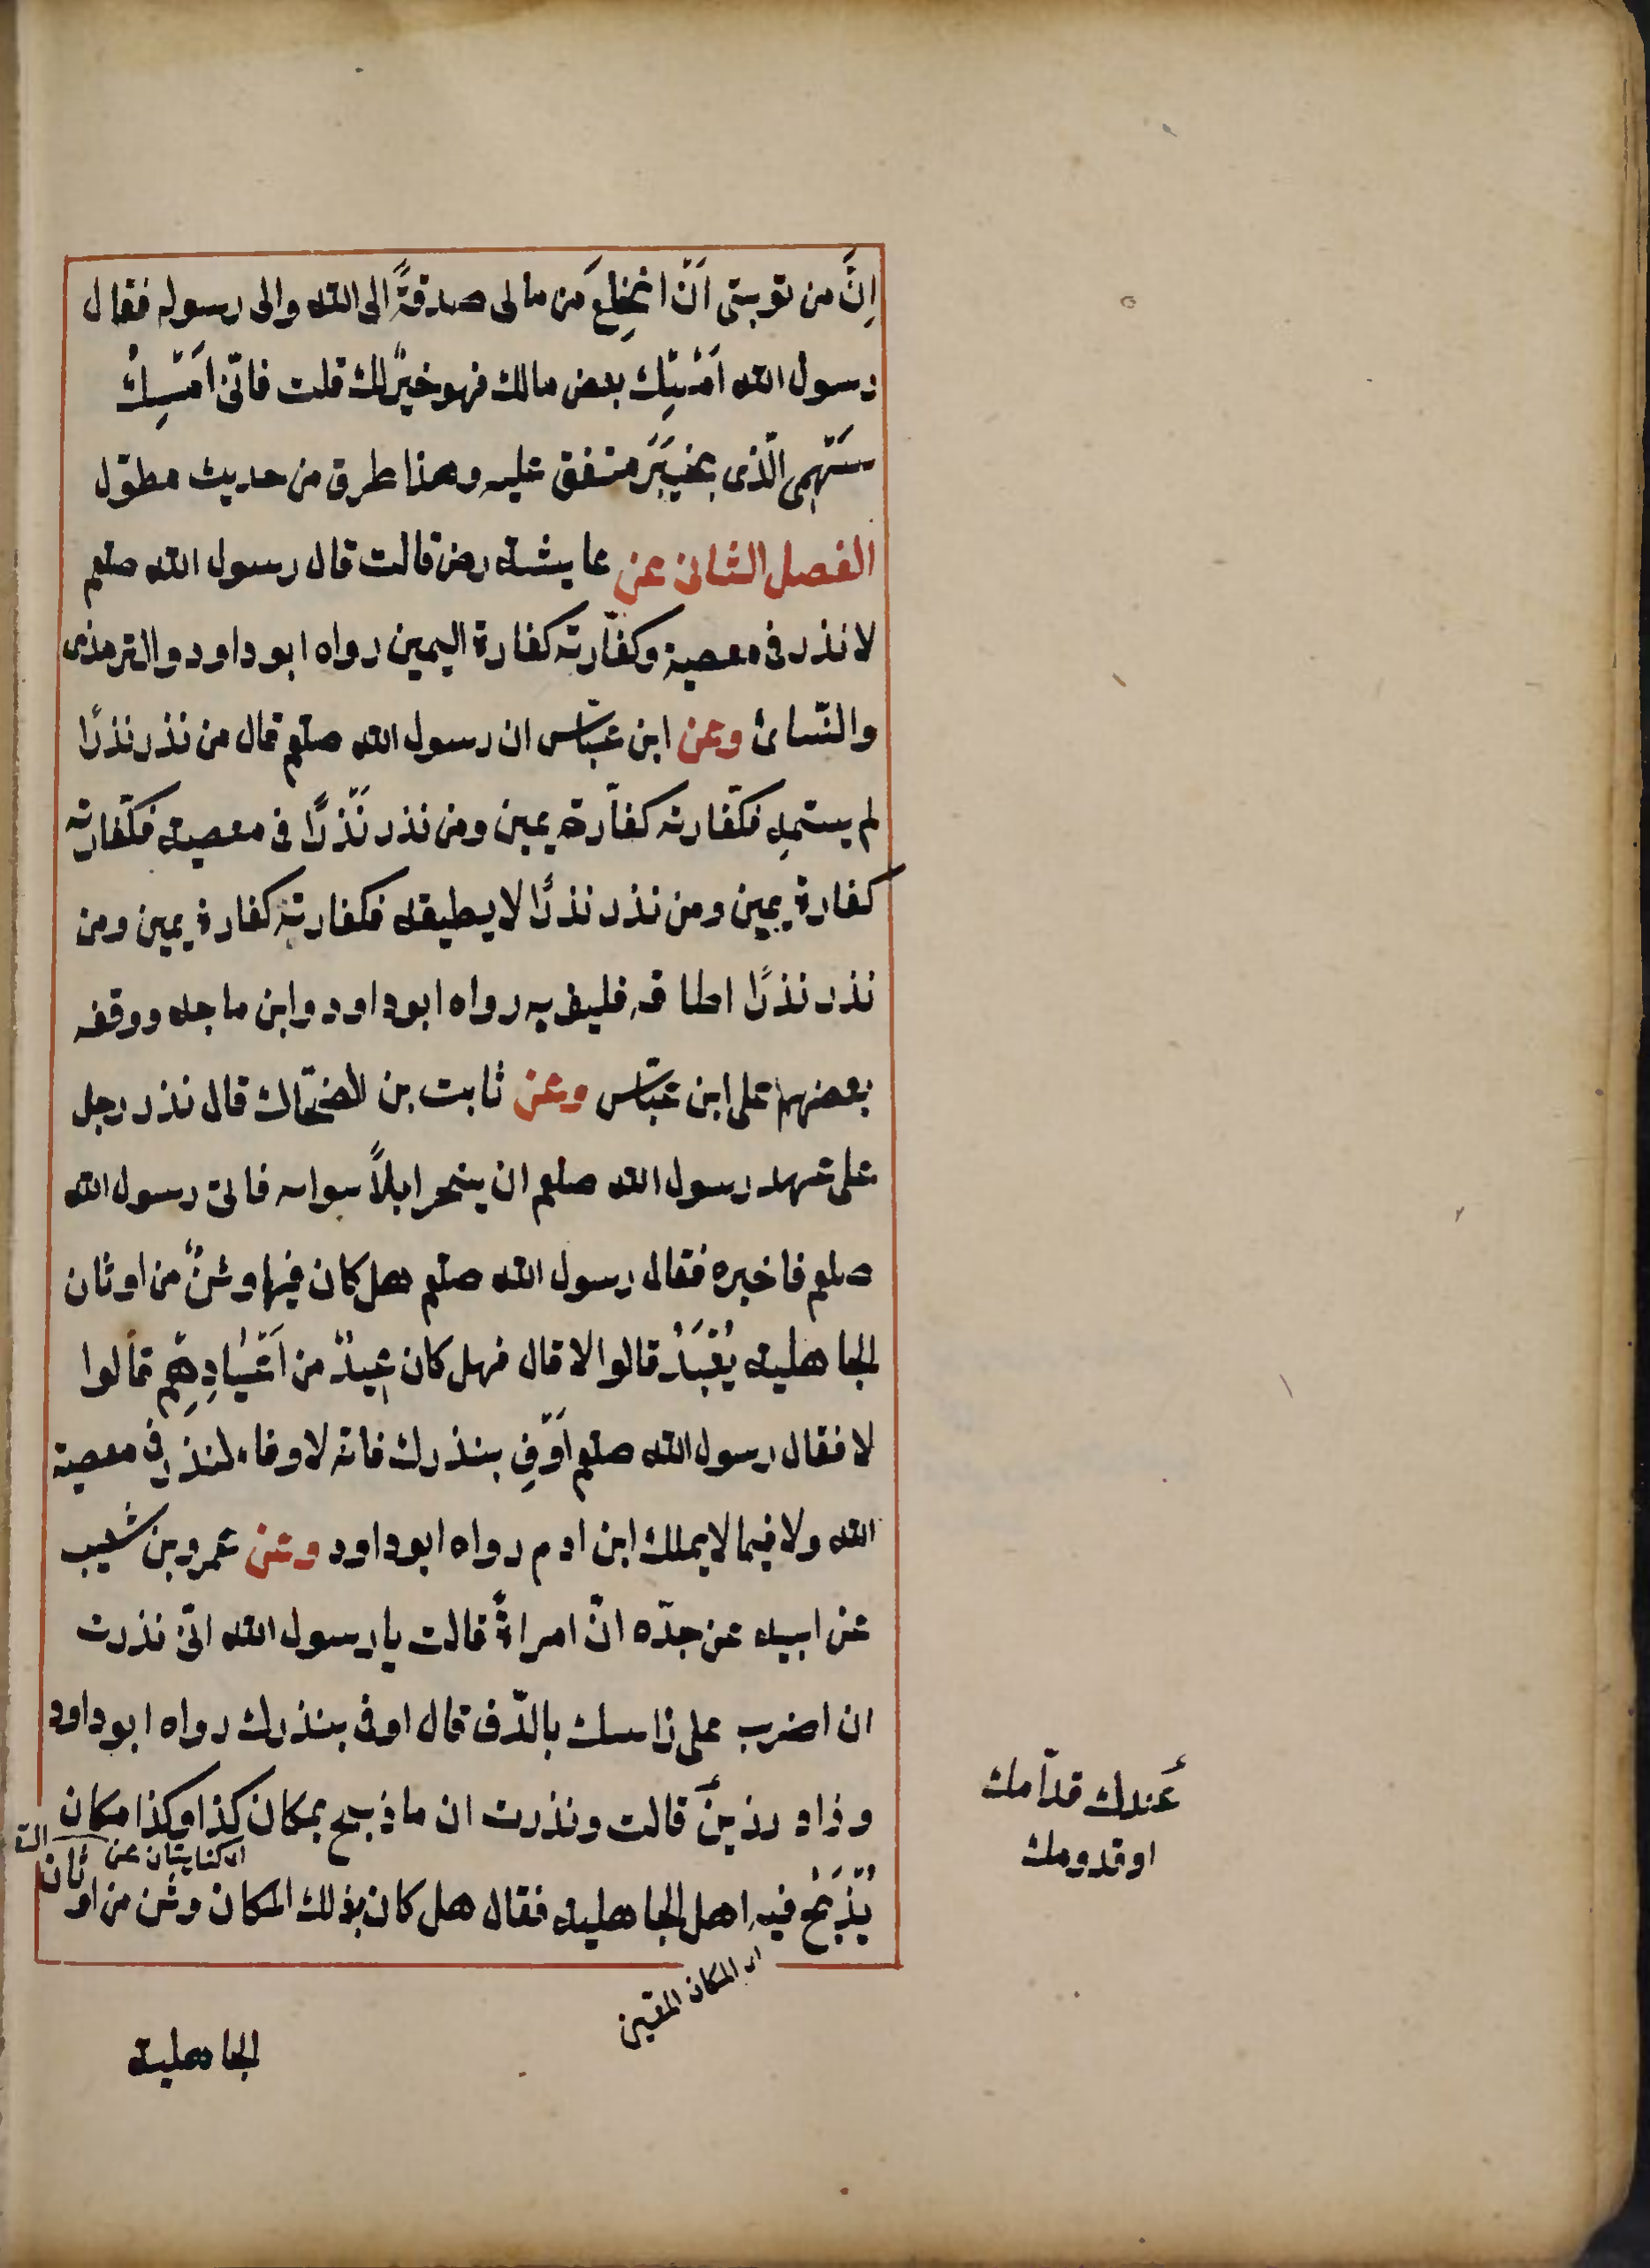 اِنَّ من توبتى اَنْ انخلِعَ من مالى صدقةً الى الله والى رسوله فقال
رسول الله اَمْسِك بعض مالك فهو خيرٌ لك قلت فانّى اُمْسِكُ
سَهْمِى الّذى بخيبَرَ متفق عليه وهذا طرق من حديث مطوّل
الفصل الثانى عن عايشة رض قالت قال رسول الله صلعم
لا نذر فى معصية وكفّارته كفارة اليمين رواه ابو داود والترمذى
والنّسائ وعن ابن عبّاس ان رسول الله صلعم قال من نذر نذرًا
لم يسمّهِ فكفّارته كفّارة يمين ومن نذر نَذْرًا فى معصية فكفّارته
كفارة يمين ومن نذر نذرًا لا يطيقه فكفارته كفارة يمين ومن
نذر نذرًا اطاقه فليف به رواه ابو داود وابن ماجه ووقفه
بعضهم على ابن عبّاس وعن ثابت بن الضحّاك قال نذر رجل
على عهد رسول الله صلعم ان ينحر ابلاً سوانه فاتى رسول الله
صلعم فاخبره فقال رسول الله صلعم هل كان فيها وثنٌ من اوثان
الجاهلية يُعْبَدُ قالوا لا قال فهل كان عِيدٌ من اَعْيَادِهِم قالوا
لا فقال رسول الله صلعم اَوْفِ بنذرك فانه لا وفاء لنذر فى معصية
الله ولا فيما لا يملك ابن ادم رواه ابو داود وعن عمرو بن شعيب
عن ابيه عن جدّه انّ امراةً قالت يا رسول الله انّى نذرت
ان اضرب على راسك بالدّف قال اوفى بنذرك رواه ابو داود
وزاد رزينٌ قالت ونذرت ان ماذبح بمكان كذا وكذا مكان
كنايتان عن
يُذْبَحُ فيه اهل الجاهلية فقال هل كان بذلك المكان وثن من اوثان
المكان المعين
الجاهلية
عندك قدّامك
او قدومك